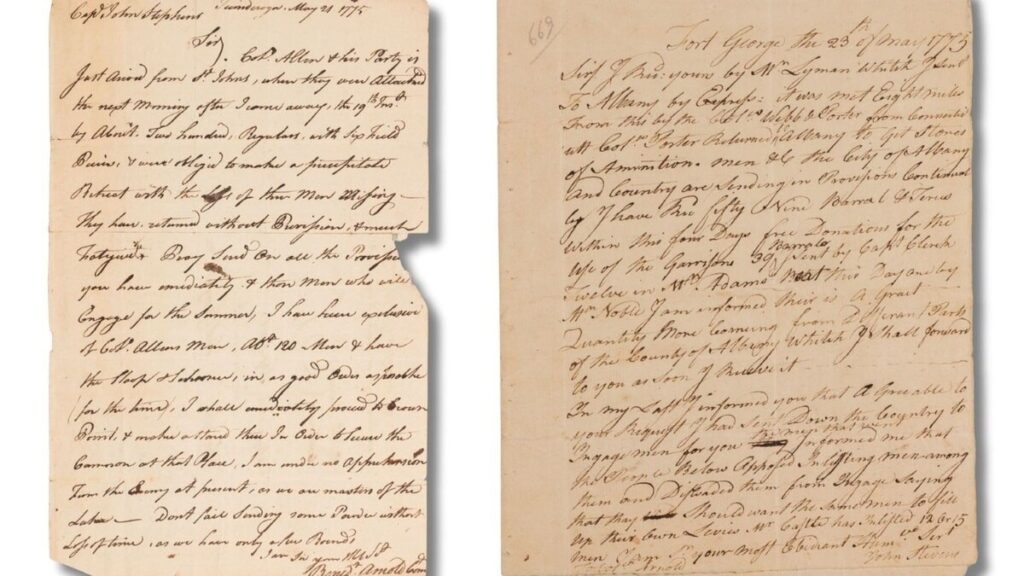 Capt John Stephens Ticonderoga, May 21 1775
Sir
Colo. Allen & his Party is
Just arived from St Johns, where they were Attacked
the next Morning after I came away, the 19th Inst
by About Two hundred, Regulars, with Six field
Peices, & were oblig'd to make a precipitate
Retreat with the loss of three Men Missing —
they have returned without Provision, & much
fatigued Pray Send On all the Provisi
you have imediately & those Men who will
Engage for the Summer, I have here exclusive
of Colo. Allens Men, Abt. 120 Men & have
the Sloop & Schooner, in as good Order as possible
(for the time), I shall imediately proceed to Crown
Point & make a stand there In Order to Secure the
Cannon at that Place, I am under no Apprehension
from the Enemy at present, as we are masters of the
Lake — Dont fail Sending some Powder without
Loss of time, as we have only a few Pound
I am Sir your Hble St
Benedt Arnold Com
669
Fort George the 23th of May 1775
Sir I Red: yours by Mr Lyman Whitch I Sent
To Albany by Express: it was met Eight miles
From this by the Colos Webb & Porter from Connecti
utt Colo. Porter Returned to Albany to Get Stores
of Amunition. men &c the City of Albany
And Country are Sending in Provisions Continual
ly I have Red fifty Nine Barral & Terces
Within this four Days free Donations for the
Use of the Garrisons 39 Barrals Sent by Capt Clerck
Twelve in Mr Adams Boat this Day and by
Mr Noble I am informed their is A Grait
Quantity More Comeing from Diferant Parts
of the County of Albany Whitch I Shall forward
to you as Soon I Receive it —
In my Last I informed you that A Greable to
your Request I had Sent Down the Country to
Ingage men for you the men that went Informed me that
the People Below Opposed Inlisting men among
them and Diswaded them from Ingage Saying
that thay Should want the Same men to file
Up their Own Levies Mr Castle has Inlisted 12 or 15
men I am Sir your Most Obediant Humle Sert
To Colo Arnold John Stevens